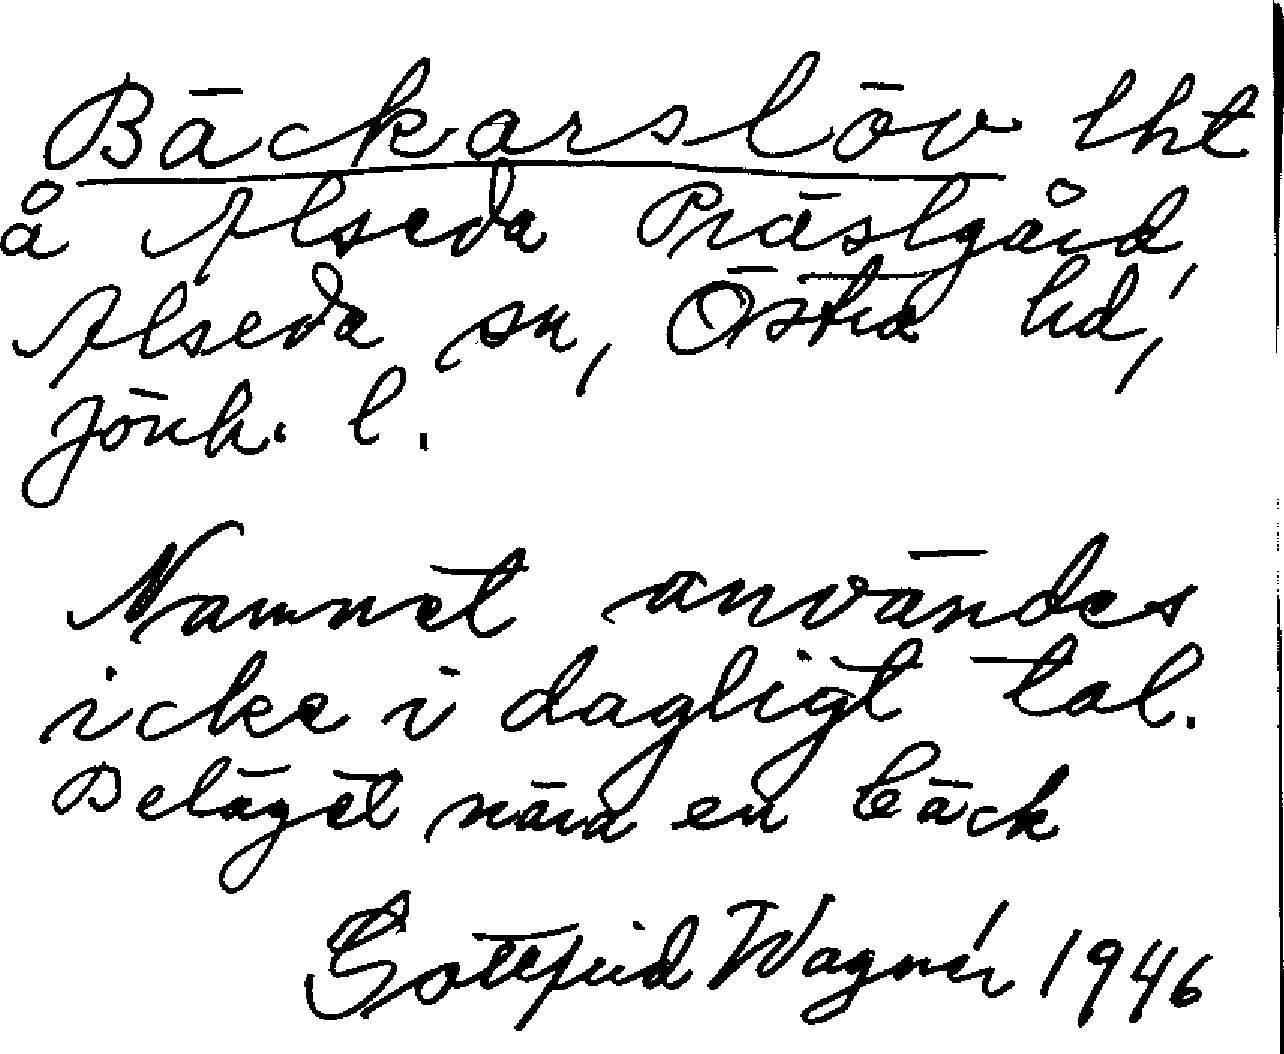 Bäckarslöv lht
å Alseda Prästgård,
Alseda sn, Östra hd,
Jönk. l.
Namnet användes
icke i dagligt tal.
Beläget nära en bäck
Gottfrid Wagnér 1946